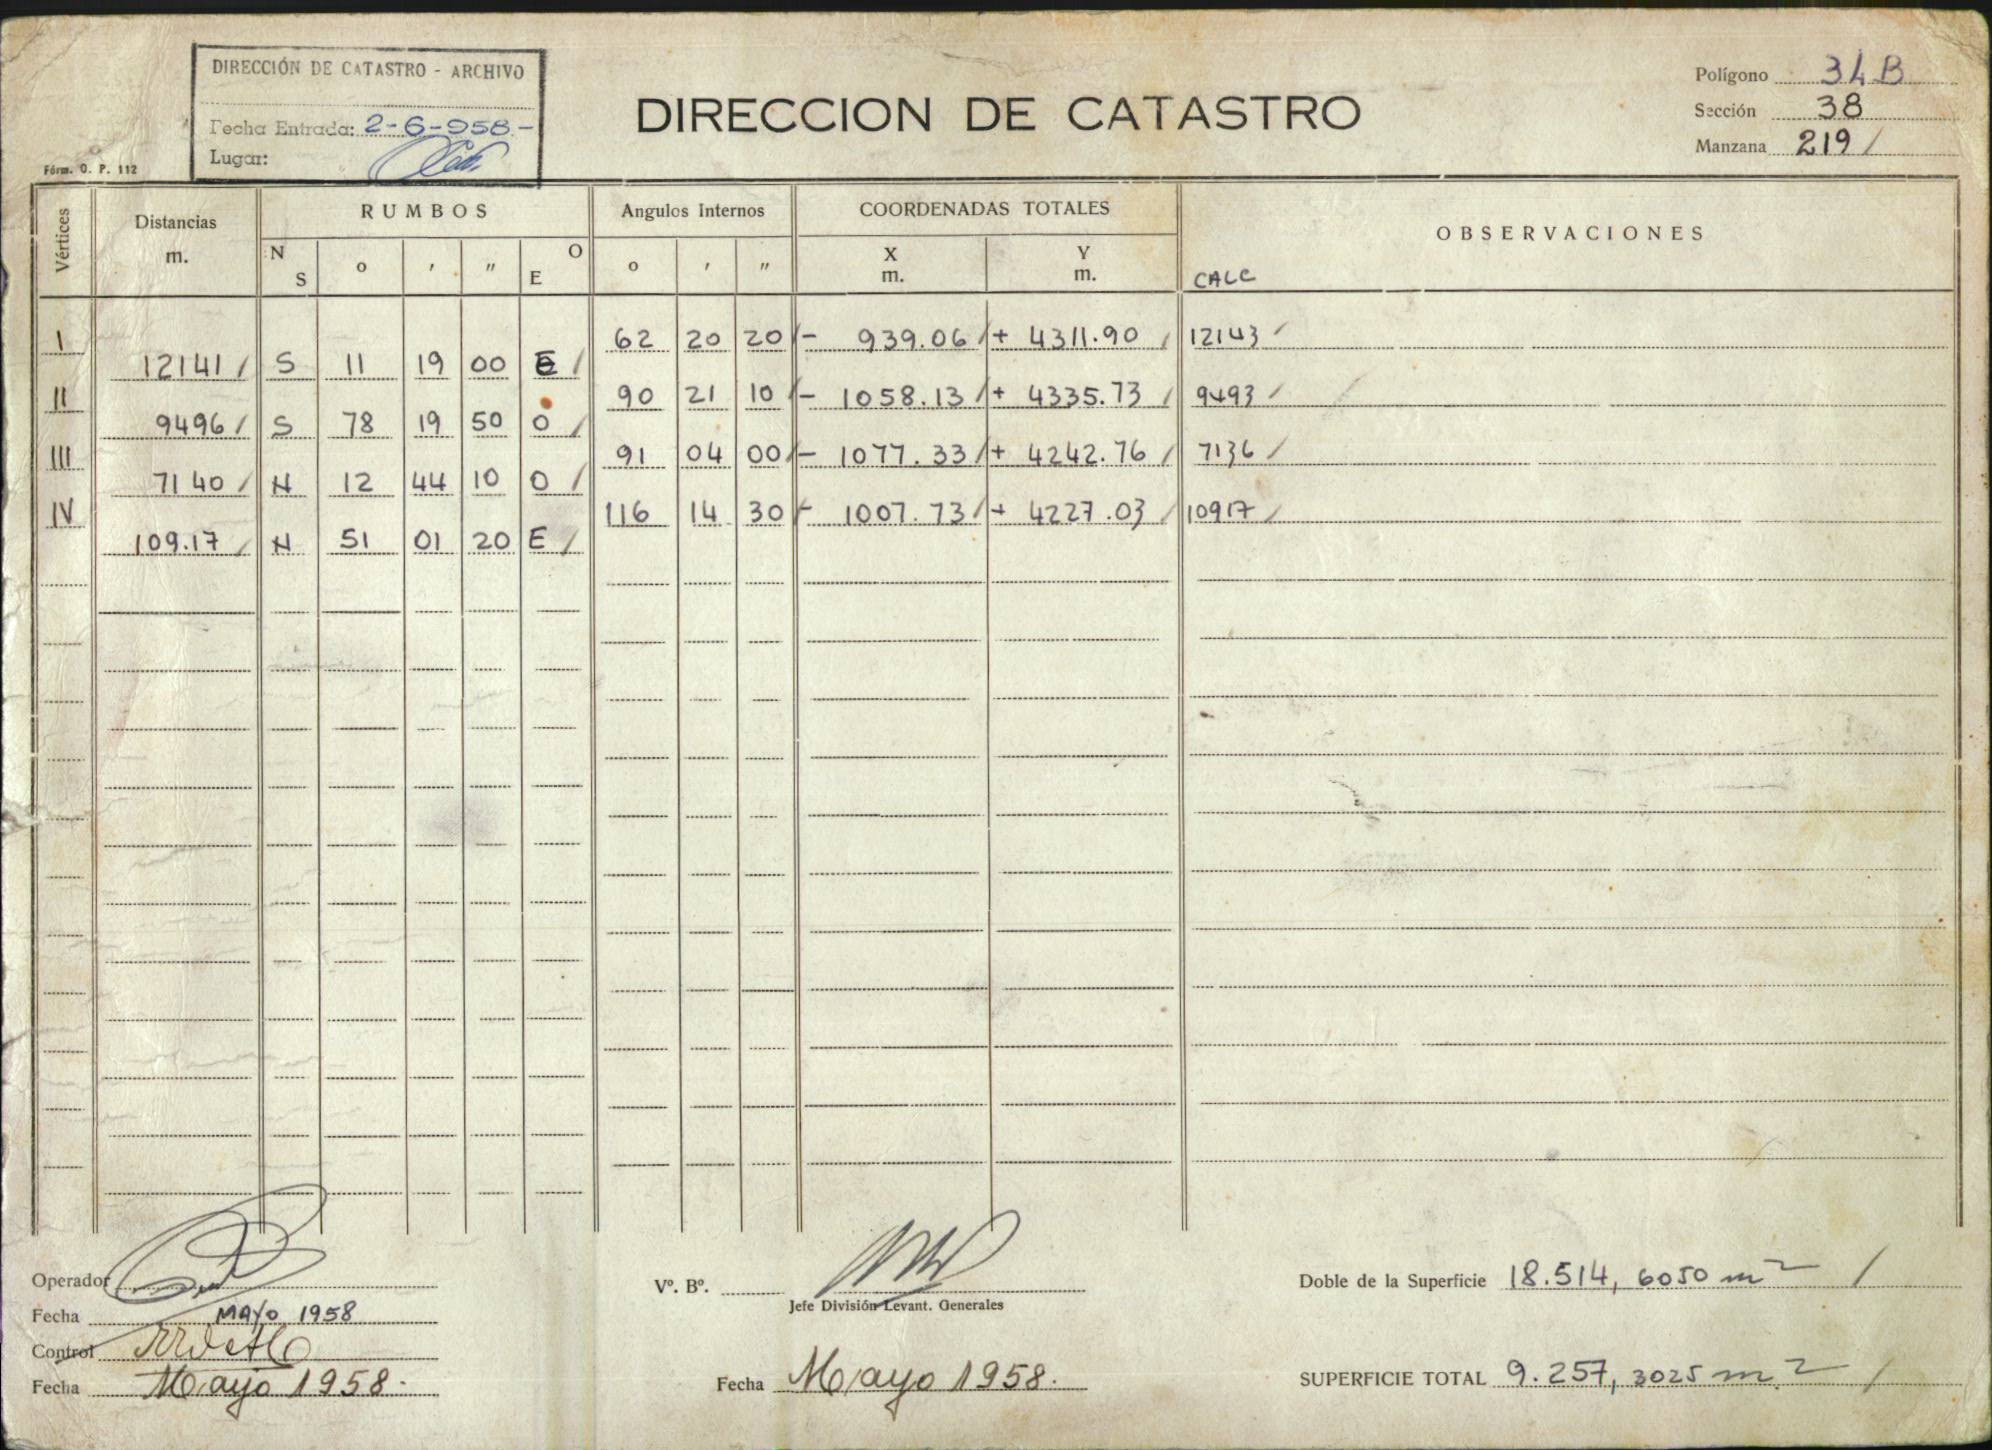 DIRECCIÓN DE CATASTRO - ARCHIVO
Fecha Entrada: 2-6-958.-
Lugar:
Fórm. O. P. 112
DIRECCION DE CATASTRO
Polígono 34B
Sección 38
Manzana 219 /
Vértices Distancias m. RUMBOS N S o ' " O E Angulos Internos o ' " COORDENADAS TOTALES X m. Y m. OBSERVACIONES
CALC
I 62 20 20 / - 939.06 / + 4311.90 / 12143 /
12141 / S 11 19 00 E /
II 90 21 10 / - 1058.13 / + 4335.73 / 9493 /
9496 / S 78 19 50 O /
III 91 04 00 / - 1077.33 / + 4242.76 / 7136 /
7140 / N 12 44 10 O /
IV 116 14 30 / - 1007.73 / + 4227.03 / 10917 /
109.17 / N 51 01 20 E /
Operador
Fecha MAYO 1958
Control
Fecha Mayo 1958.
Vº. Bº.
Jefe División Levant. Generales
Fecha Mayo 1958.
Doble de la Superficie 18.514, 6050 m² /
SUPERFICIE TOTAL 9.257, 3025 m² /